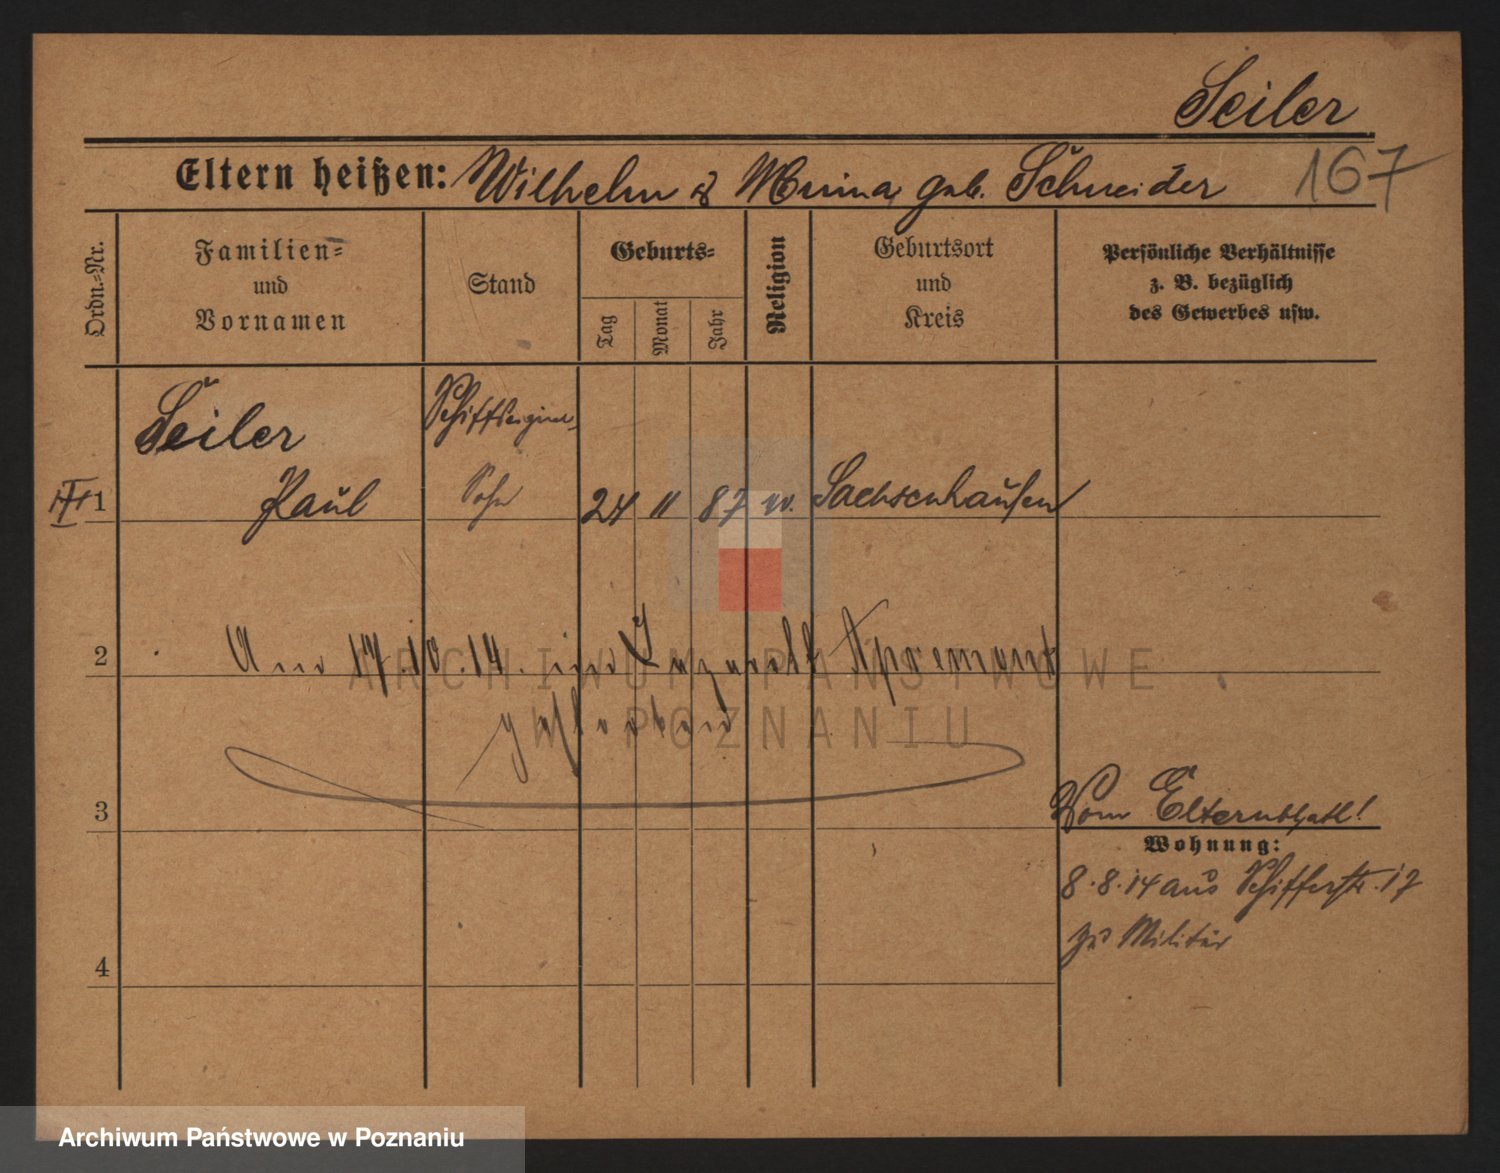 Seiler
Eltern heißen: Wilhelm & Minna geb. Schneider 167
Ordn.-Nr.
Familien-
und
Vornamen
Stand
Geburts-
Tag
Monat
Jahr
Religion
Geburtsort
und
Kreis
Persönliche Verhältnisse
z. B. bezüglich
des Gewerbes usw.
Seiler
1 Paul Sohn 24 11 87 Sachsenhausen
2 Am 17.10.14. im Lazarett Apremont
gestorben
3
Vom Elternblatt!
Wohnung:
8.8.14 aus Schifferstr. 17
zu Militär
4
ARCHIWUM PAŃSTWOWE
W POZNANIU
Archiwum Państwowe w Poznaniu